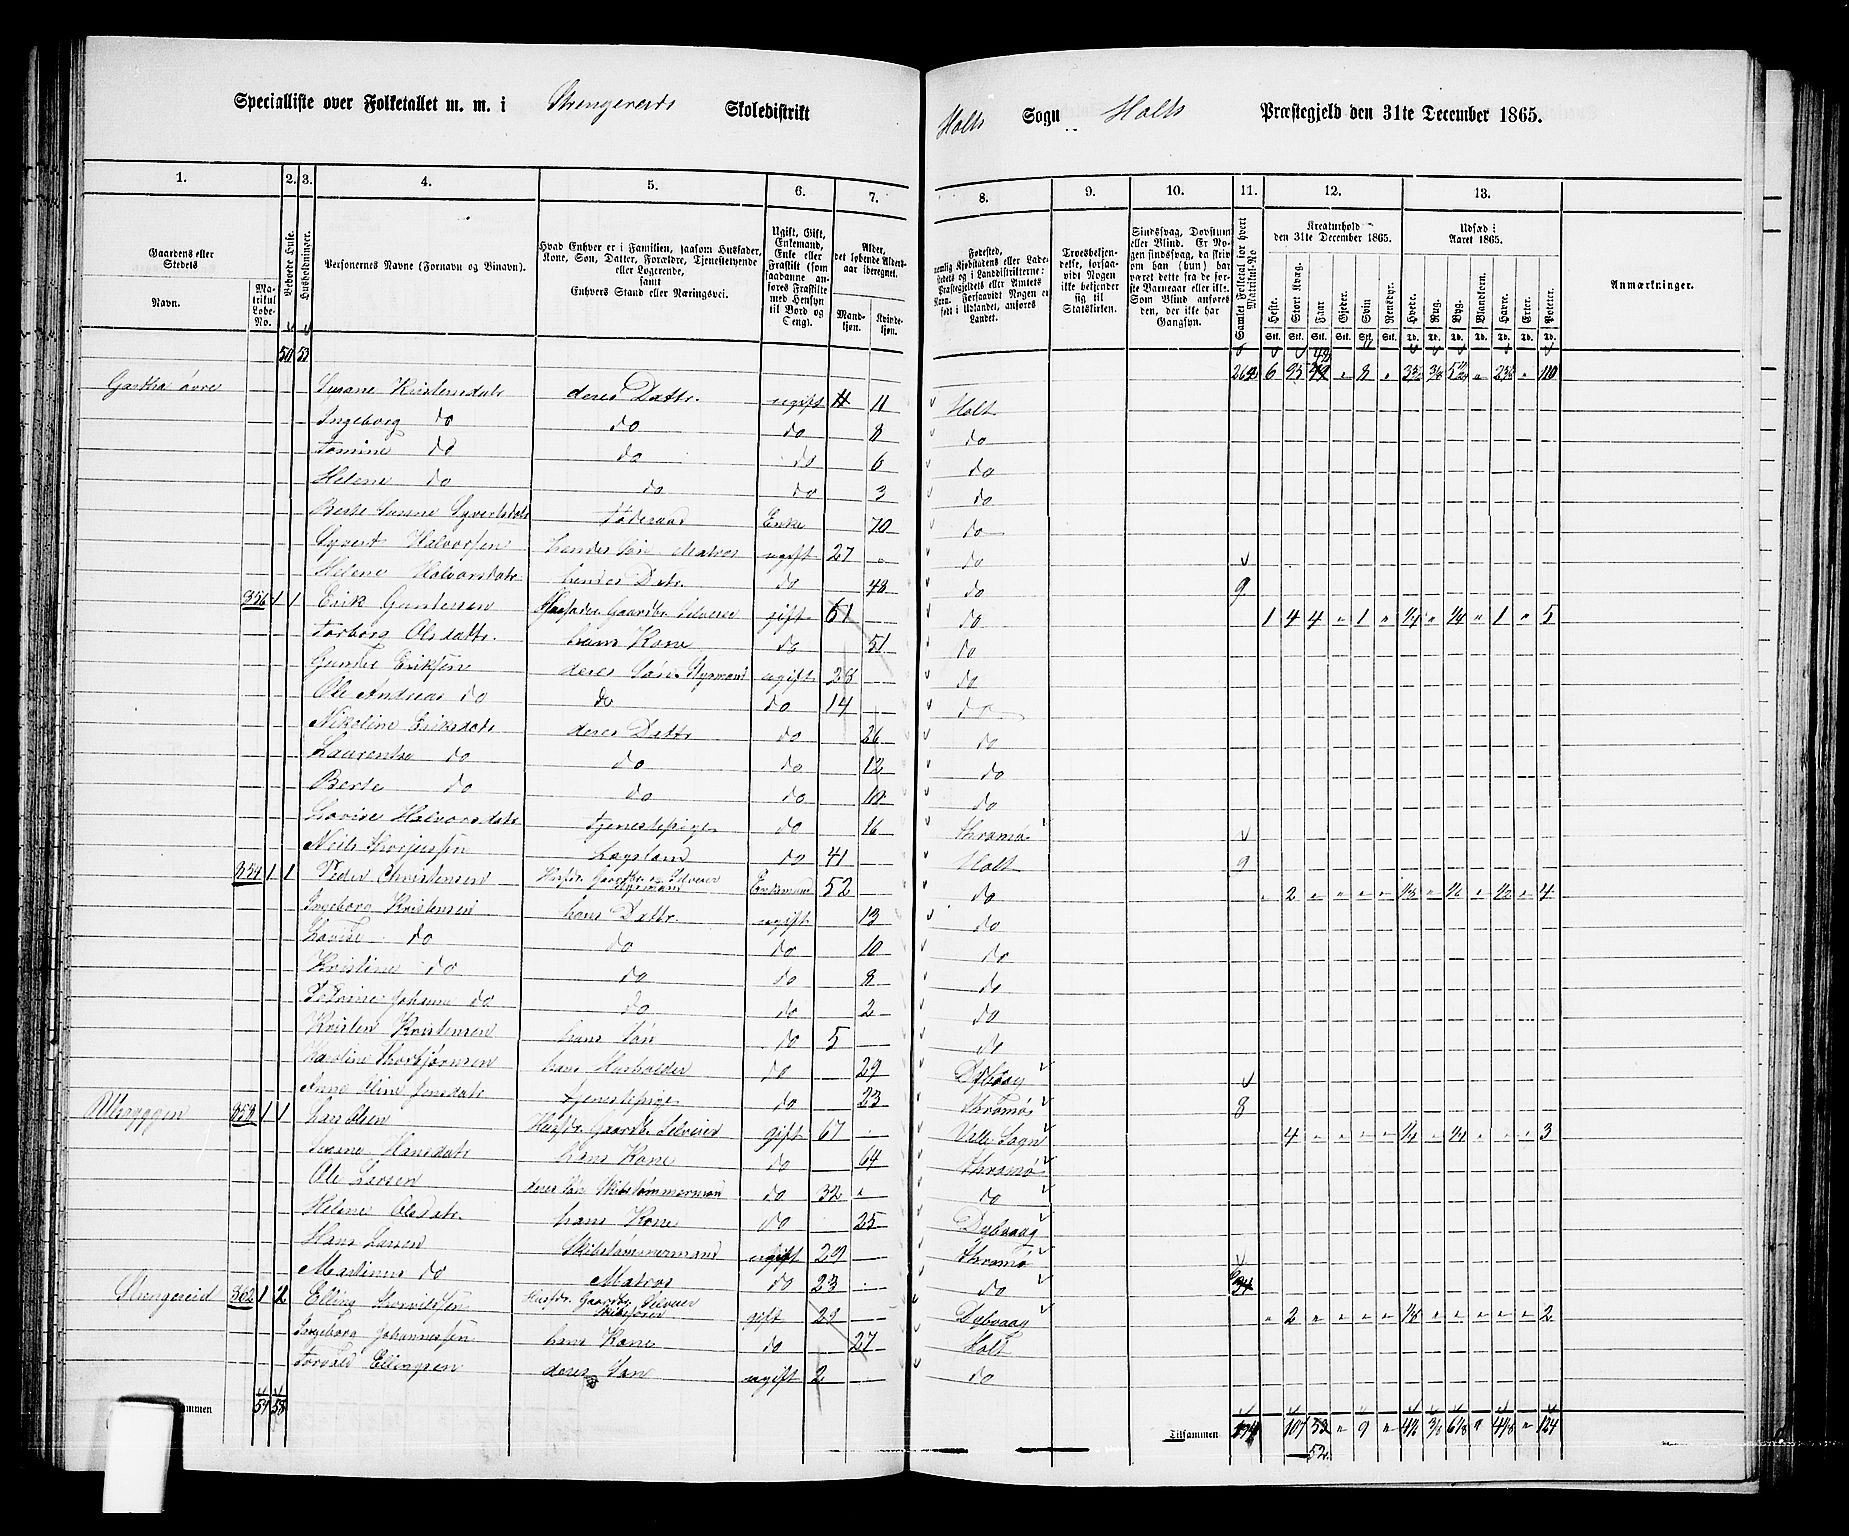 Specialliste over Folketallet m. m. i Strengereids Skoledistrikt Holts Sogn Holts Præstegjeld den 31te December 1865.
1. 2. 3. 4. 5. 6. 7. 8. 9. 10. 11. 12. 13.
Gaardens eller Stedets Navn. Matrikul Løbe-No. Beboede Huse. Husholdninger. Personernes Navne (Fornavn og Binavn).
Hvad Enhver er i Familien, saasom Husfader, Kone, Søn, Datter, Forældre, Tjenestetyende eller Logerende, samt Enhvers Stand eller Næringsvei.
Ugift, Gift, Enkemand, Enke eller Fraskilt (som saadanne anføres Fraskilte med Hensyn til Bord og Seng).
Alder, det løbende Aldersaar iberegnet. Mandkjøn. Kvindekjøn.
Fødested, nemlig Kjøbstadens eller Ladestedets og i Landdistrikterne: Præstegjeldets eller Amtets Navn. Forsaavidt Nogen er født i Udlandet, anføres Landet.
Troesbekjendelse, forsaavidt Nogen ikke bekjender sig til Statskirken.
Sindssvag, Døvstum eller Blind. Er Nogen sindssvag, da skrives om han (hun) har været dette fra de første Barneaar eller ikke. Som Blind anføres den, der ikke har Gangsyn.
Samlet Folketal for hvert Matrikul-No
Kreaturhold den 31te December 1865. Heste. Stort Kvæg. Faar. Gjeder. Svin. Rensdyr.
Udsæd i Aaret 1865. Hvede. Rug. Byg. Blandkorn. Havre. Erter. Poteter.
Anmærkninger.
Gartha øvre Susane Kristensdatr deres Dattr. ugift 11 Holt
Ingeborg do do do 8 do
Tomine do do do 6 do
Helene do do do 3 do
Berte Susane Syvertsdatr Føderaad Enke 70 do
Syvert Halvorsen hendes Søn Matros ugift 27 do
Helene Halvorsdatr hendes Datr. do 48 do 9
356 1 1 Erik Gundersen Husfader Gaardbr Selveier gift 61 do 1 4 4 " 1 " 1/4 " 1/4 " 1 " 5
Torborg Olsdattr. hans Kone do 51 do
Gunder Eriksen deres Søn Styrmand ugift 28 do
Ole Andreas do do do 14 do
Nikoline Eriksdatr deres Dattr do 26 do
Laurentse do do do 12 do
Berte do do do 10 do
Lovise Halvorsdatr Tjenestepige do 16 Thromø
Niels Thorjussen Lægslem do 41 Holt 9
354 1 1 Peder Christensen Husfdr. Gaardbr og Selveier Styrmand Enkemand 52 do " 2 " " " " 1/8 " 1/2 " 1/2 " 4
Ingeborg Kristensen hans Dattr. ugift 13 do
Lovise do do do 10 do
Kristine do do do 8 do
Petrine Johanne do do do 2 do
Kristen Kristensen hans Søn do 5 do
Karoline Thorbjørnsen hans Husholder do 29 Dybvaag
Anne Oline Jensdatr Tjenestepige do 23 Thromø 8
358 1 1 Lars Olsen Husfdr. Gaardbr Selveier gift 67 Valle Sogn 4 " " " " 1/4 " 1/4 " " " 3
Susane Hansdatr hans Kone do 64 Thromø
Ole Larsen deres Søn Skibstømmermand do 32 do
Helene Olsdatr. hans Kone do 25 Dybvaag
Hans Larsen Skibstømmermand ugift 29 Thromø
Martinus do Matros do 23 do
Strengereid 362 1 2 Elling Husfdr. Gaardbr Selveier Skibsfører gift 29 Dybvaag " 2 " " " " 1/8 " " " " " 2
Ingeborg Johannessen hans Kone do 27 Holt
Torvald Ellingsen deres Søn ugift 2 do
54 58 Tilsammen 107 52 " 9 " 124
52